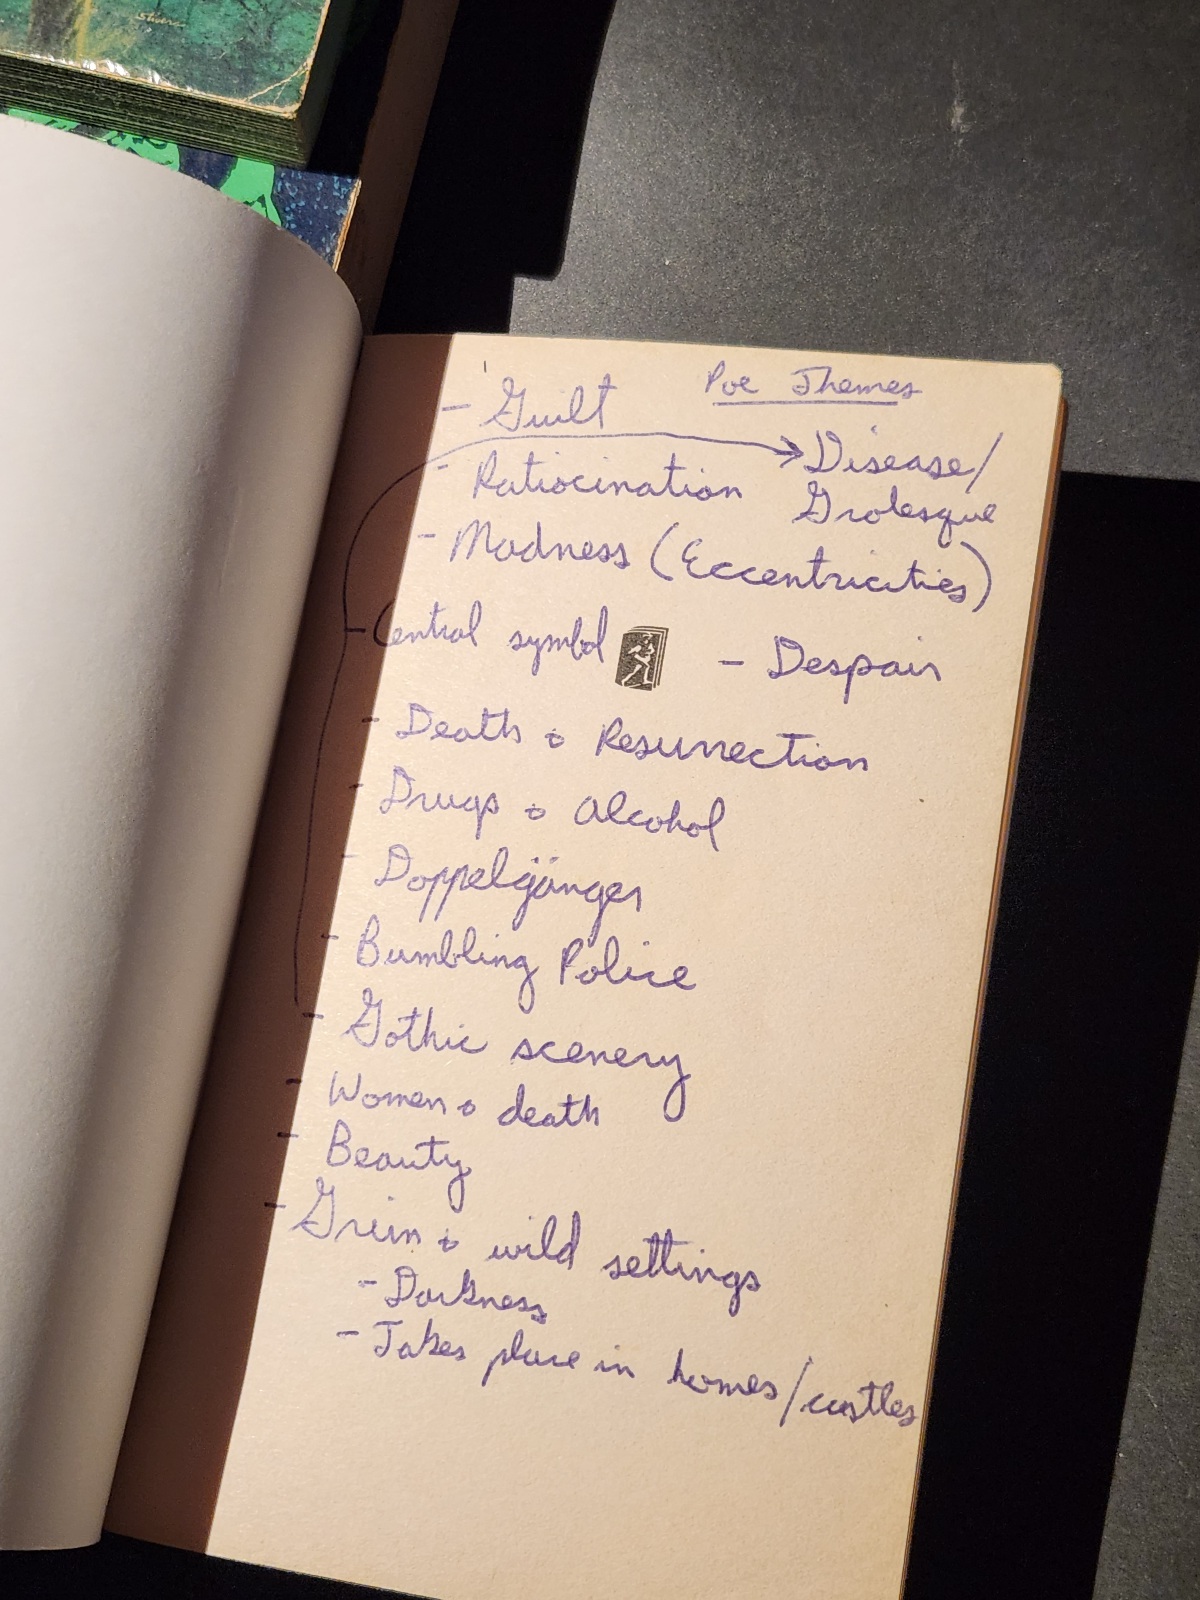 Stivers
Poe Themes
- Guilt
Disease/
- Ratiocination
Grotesque
- Madness (Eccentricities)
- Central symbol
- Despair
- Death & Resurrection
- Drugs & Alcohol
- Doppelgänger
- Bumbling Police
- Gothic scenery
- Women & death
- Beauty
- Grim & wild settings
- Darkness
- Takes place in homes/castles